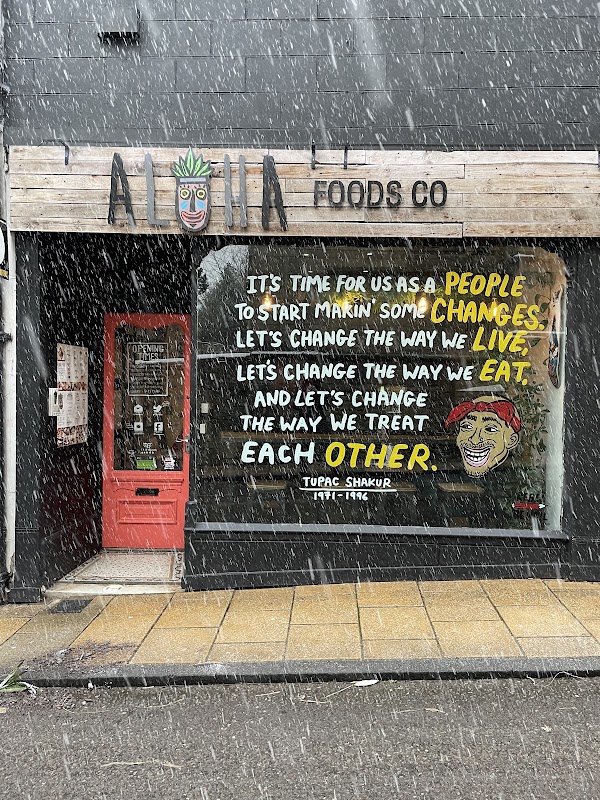 ALOHA FOODS CO
IT'S TIME FOR US AS A PEOPLE
TO START MAKIN' SOME CHANGES.
LET'S CHANGE THE WAY WE LIVE,
LET'S CHANGE THE WAY WE EAT,
AND LET'S CHANGE
THE WAY WE TREAT
EACH OTHER.
TUPAC SHAKUR
1971-1996
OPENING
TIMES